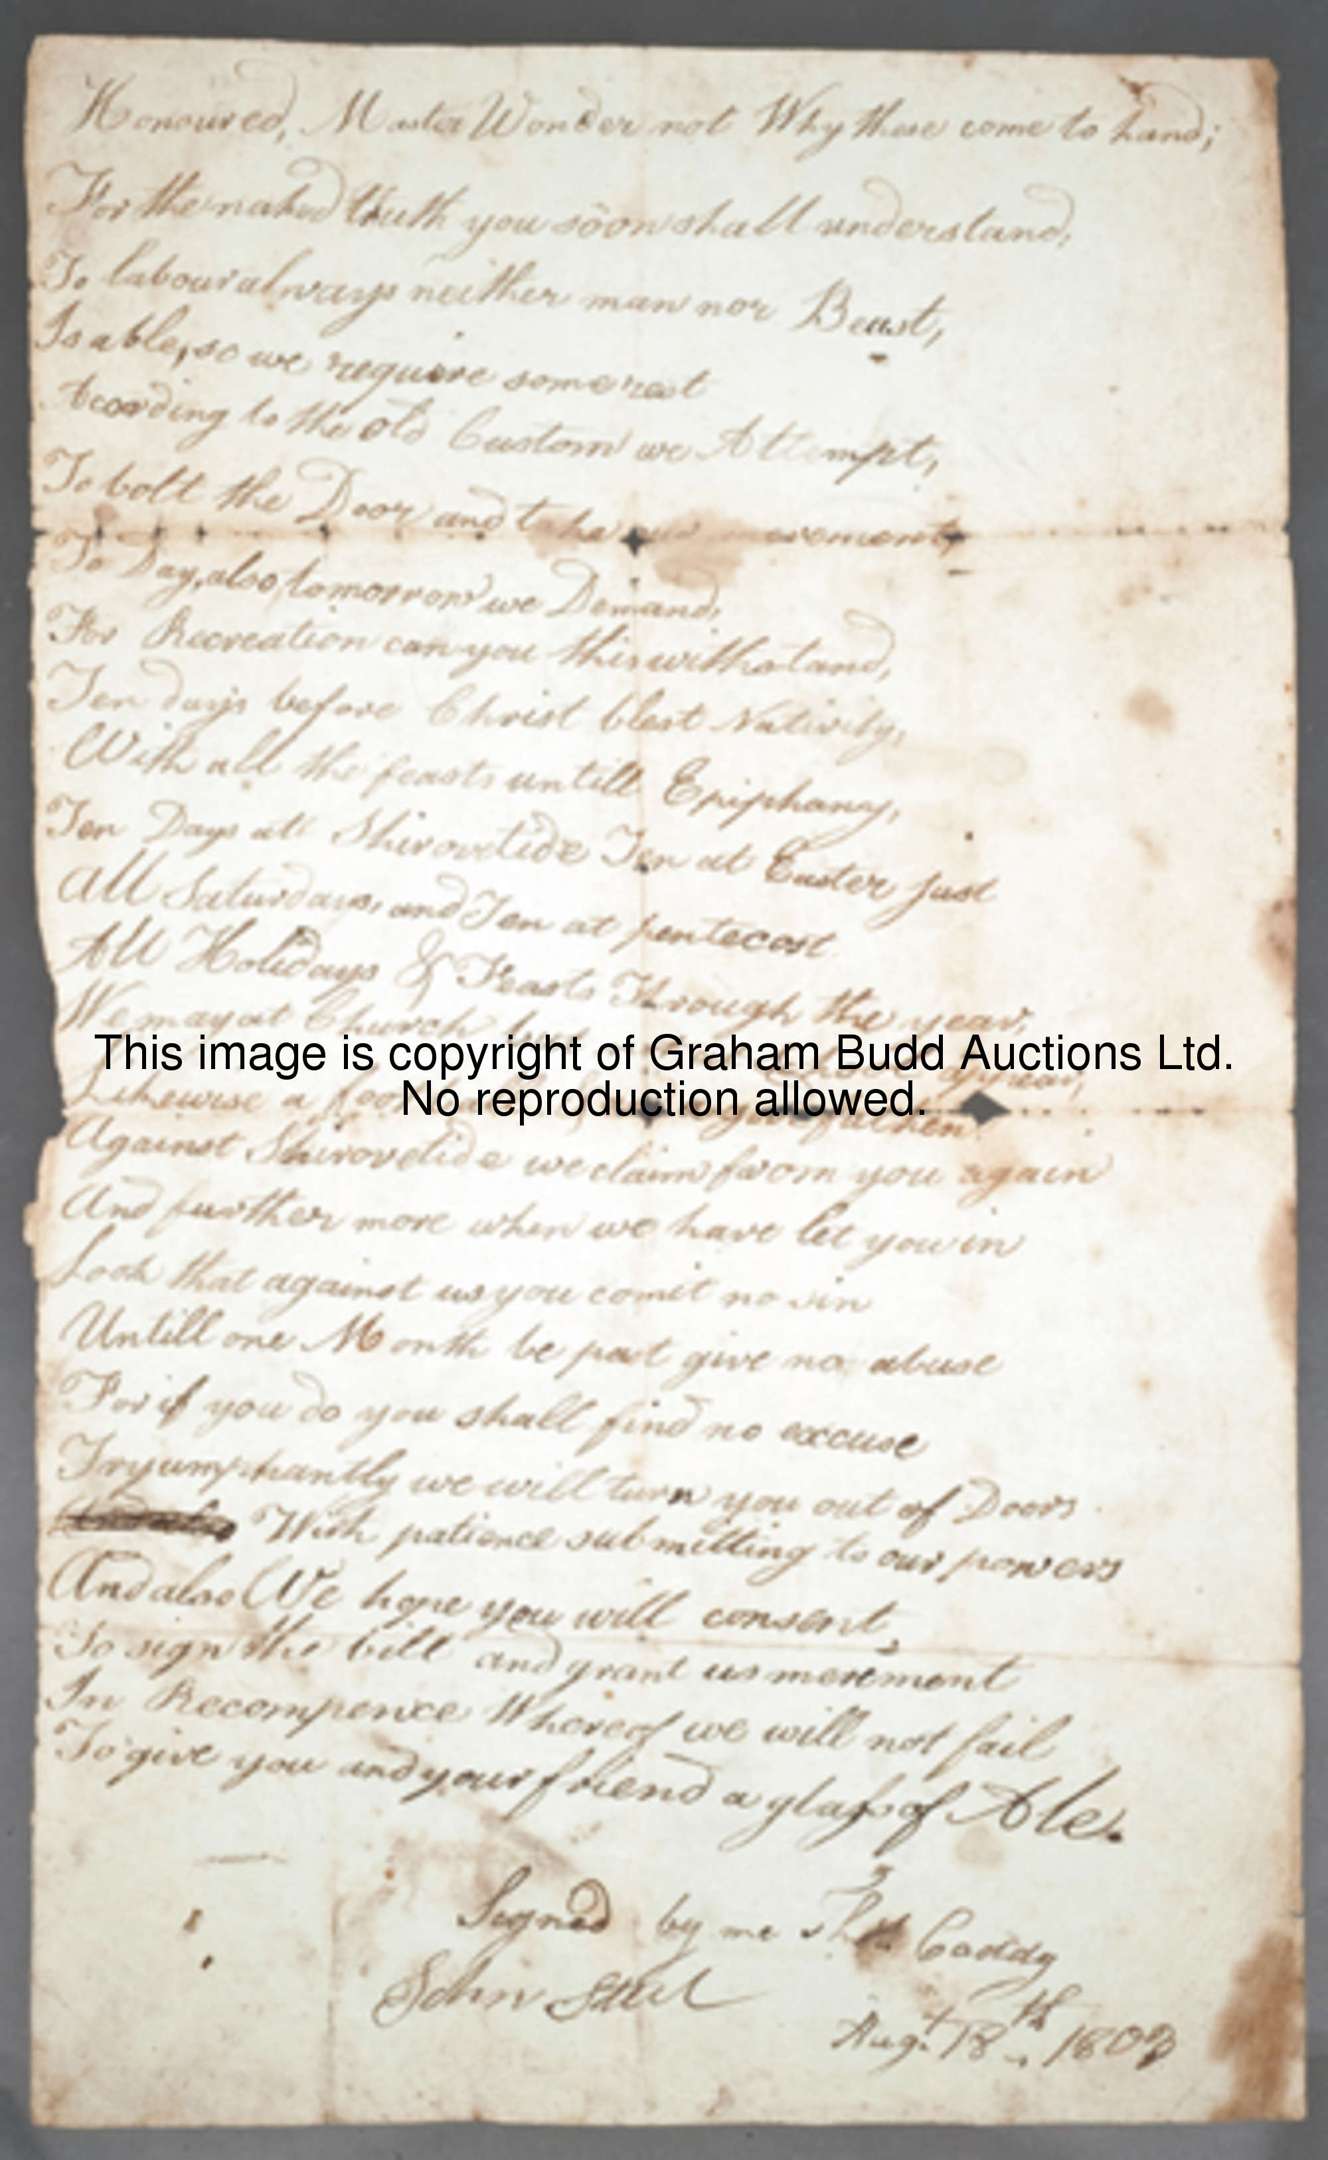 Honoured, Master Wonder not Why these come to hand;
For the naked truth you soon shall understand,
To labour always neither man nor Beast,
Is able, so we require some rest
Acording to the old Custom we Attempt,
To bolt the Door and take our merement,
To Day, also tomorrow we Demand,
For Recreation can you this withstand,
Ten days before Christ blest Nativity,
With all the feasts untill Epiphany,
Ten Days att Shirovetide Ten at Easter just
All Saturdays, and Ten at pentecost
All Holidays & Feasts Through the year,
We may at Church appear,
This image is copyright of Graham Budd Auctions Ltd.
No reproduction allowed.
Likewise a
Against Shirovetide we claim from you again
And further more when we have let you in
Look that against us you comit no sin
Untill one Month be past give no abuse
For if you do you shall find no excuse
Tryumphantly we will turn you out of Doors
With patience submitting to our powers
And also We hope you will consent,
To sign the bill and grant us merement
In Recompence Whereof we will not fail
To give you and your friend a glass of Ale.
Signed by me Caddy
John
Augt. 18th 1803